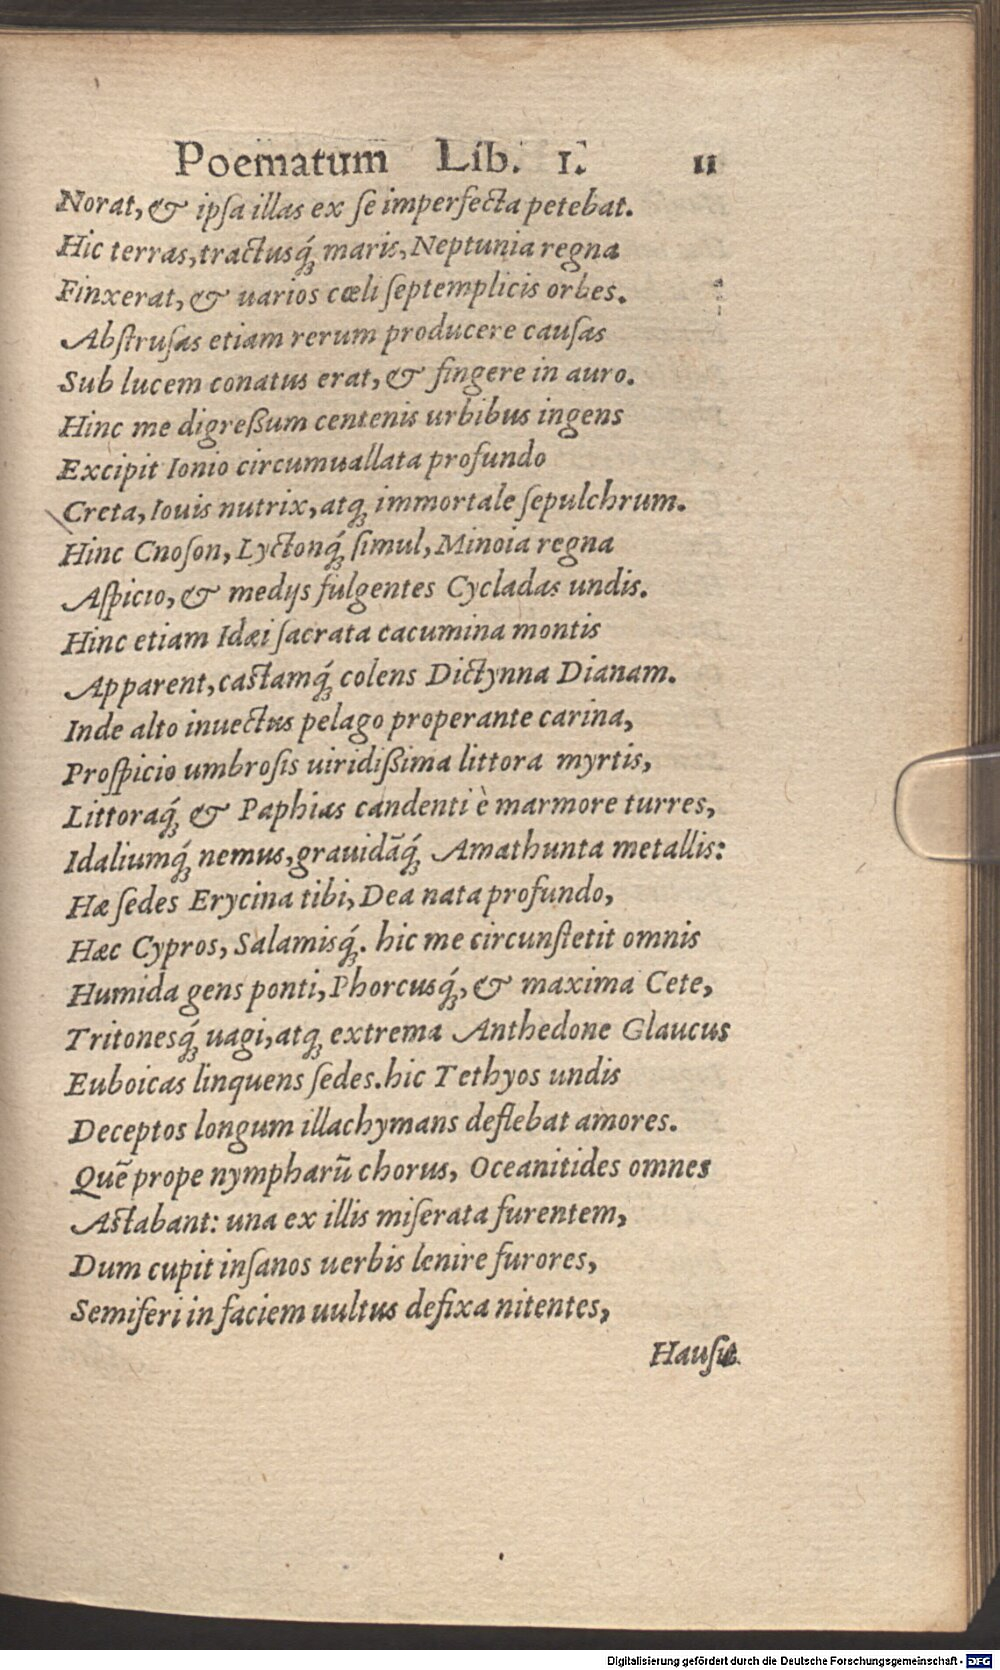 Poematum Lib. 1. 11
Norat, & ipſa illas ex ſe imperfecta petebat.
Hic terras, tractusq́ꝫ maris, Neptunia regna
Finxerat, & uarios cœli ſeptemplicis orbes.
Abſtruſas etiam rerum producere cauſas
Sub lucem conatus erat, & fingere in auro.
Hinc me digreßum centenis urbibus ingens
Excipit Ionio circumuallata profundo
Creta, Iouis nutrix, atqꝫ immortale ſepulchrum.
Hinc Cnoſon, Lyctonq́ꝫ ſimul, Minoia regna
Aſpicio, & medijs fulgentes Cycladas undis.
Hinc etiam Idæi ſacrata cacumina montis
Apparent, castamq́ꝫ colens Dictynna Dianam.
Inde alto inuectus pelago properante carina,
Proſpicio umbroſis uiridißima littora myrtis,
Littoraq́ꝫ & Paphias candenti è marmore turres,
Idaliumq́ꝫ nemus, grauidāq́ꝫ Amathunta metallis:
Hæ ſedes Erycina tibi, Dea nata profundo,
Hæc Cypros, Salamisq́ꝫ. hic me circunſtetit omnis
Humida gens ponti, Phorcusq́ꝫ, & maxima Cete,
Tritonesq́ꝫ uagi, atqꝫ extrema Anthedone Glaucus
Euboicas linquens ſedes. hic Tethyos undis
Deceptos longum illachymans deflebat amores.
Quē prope nympharū chorus, Oceanitides omnes
Astabant: una ex illis miſerata furentem,
Dum cupit inſanos uerbis lenire furores,
Semiferi in faciem uultus defixa nitentes,
Hauſit
Digitalisierung gefördert durch die Deutsche Forschungsgemeinschaft - DFG